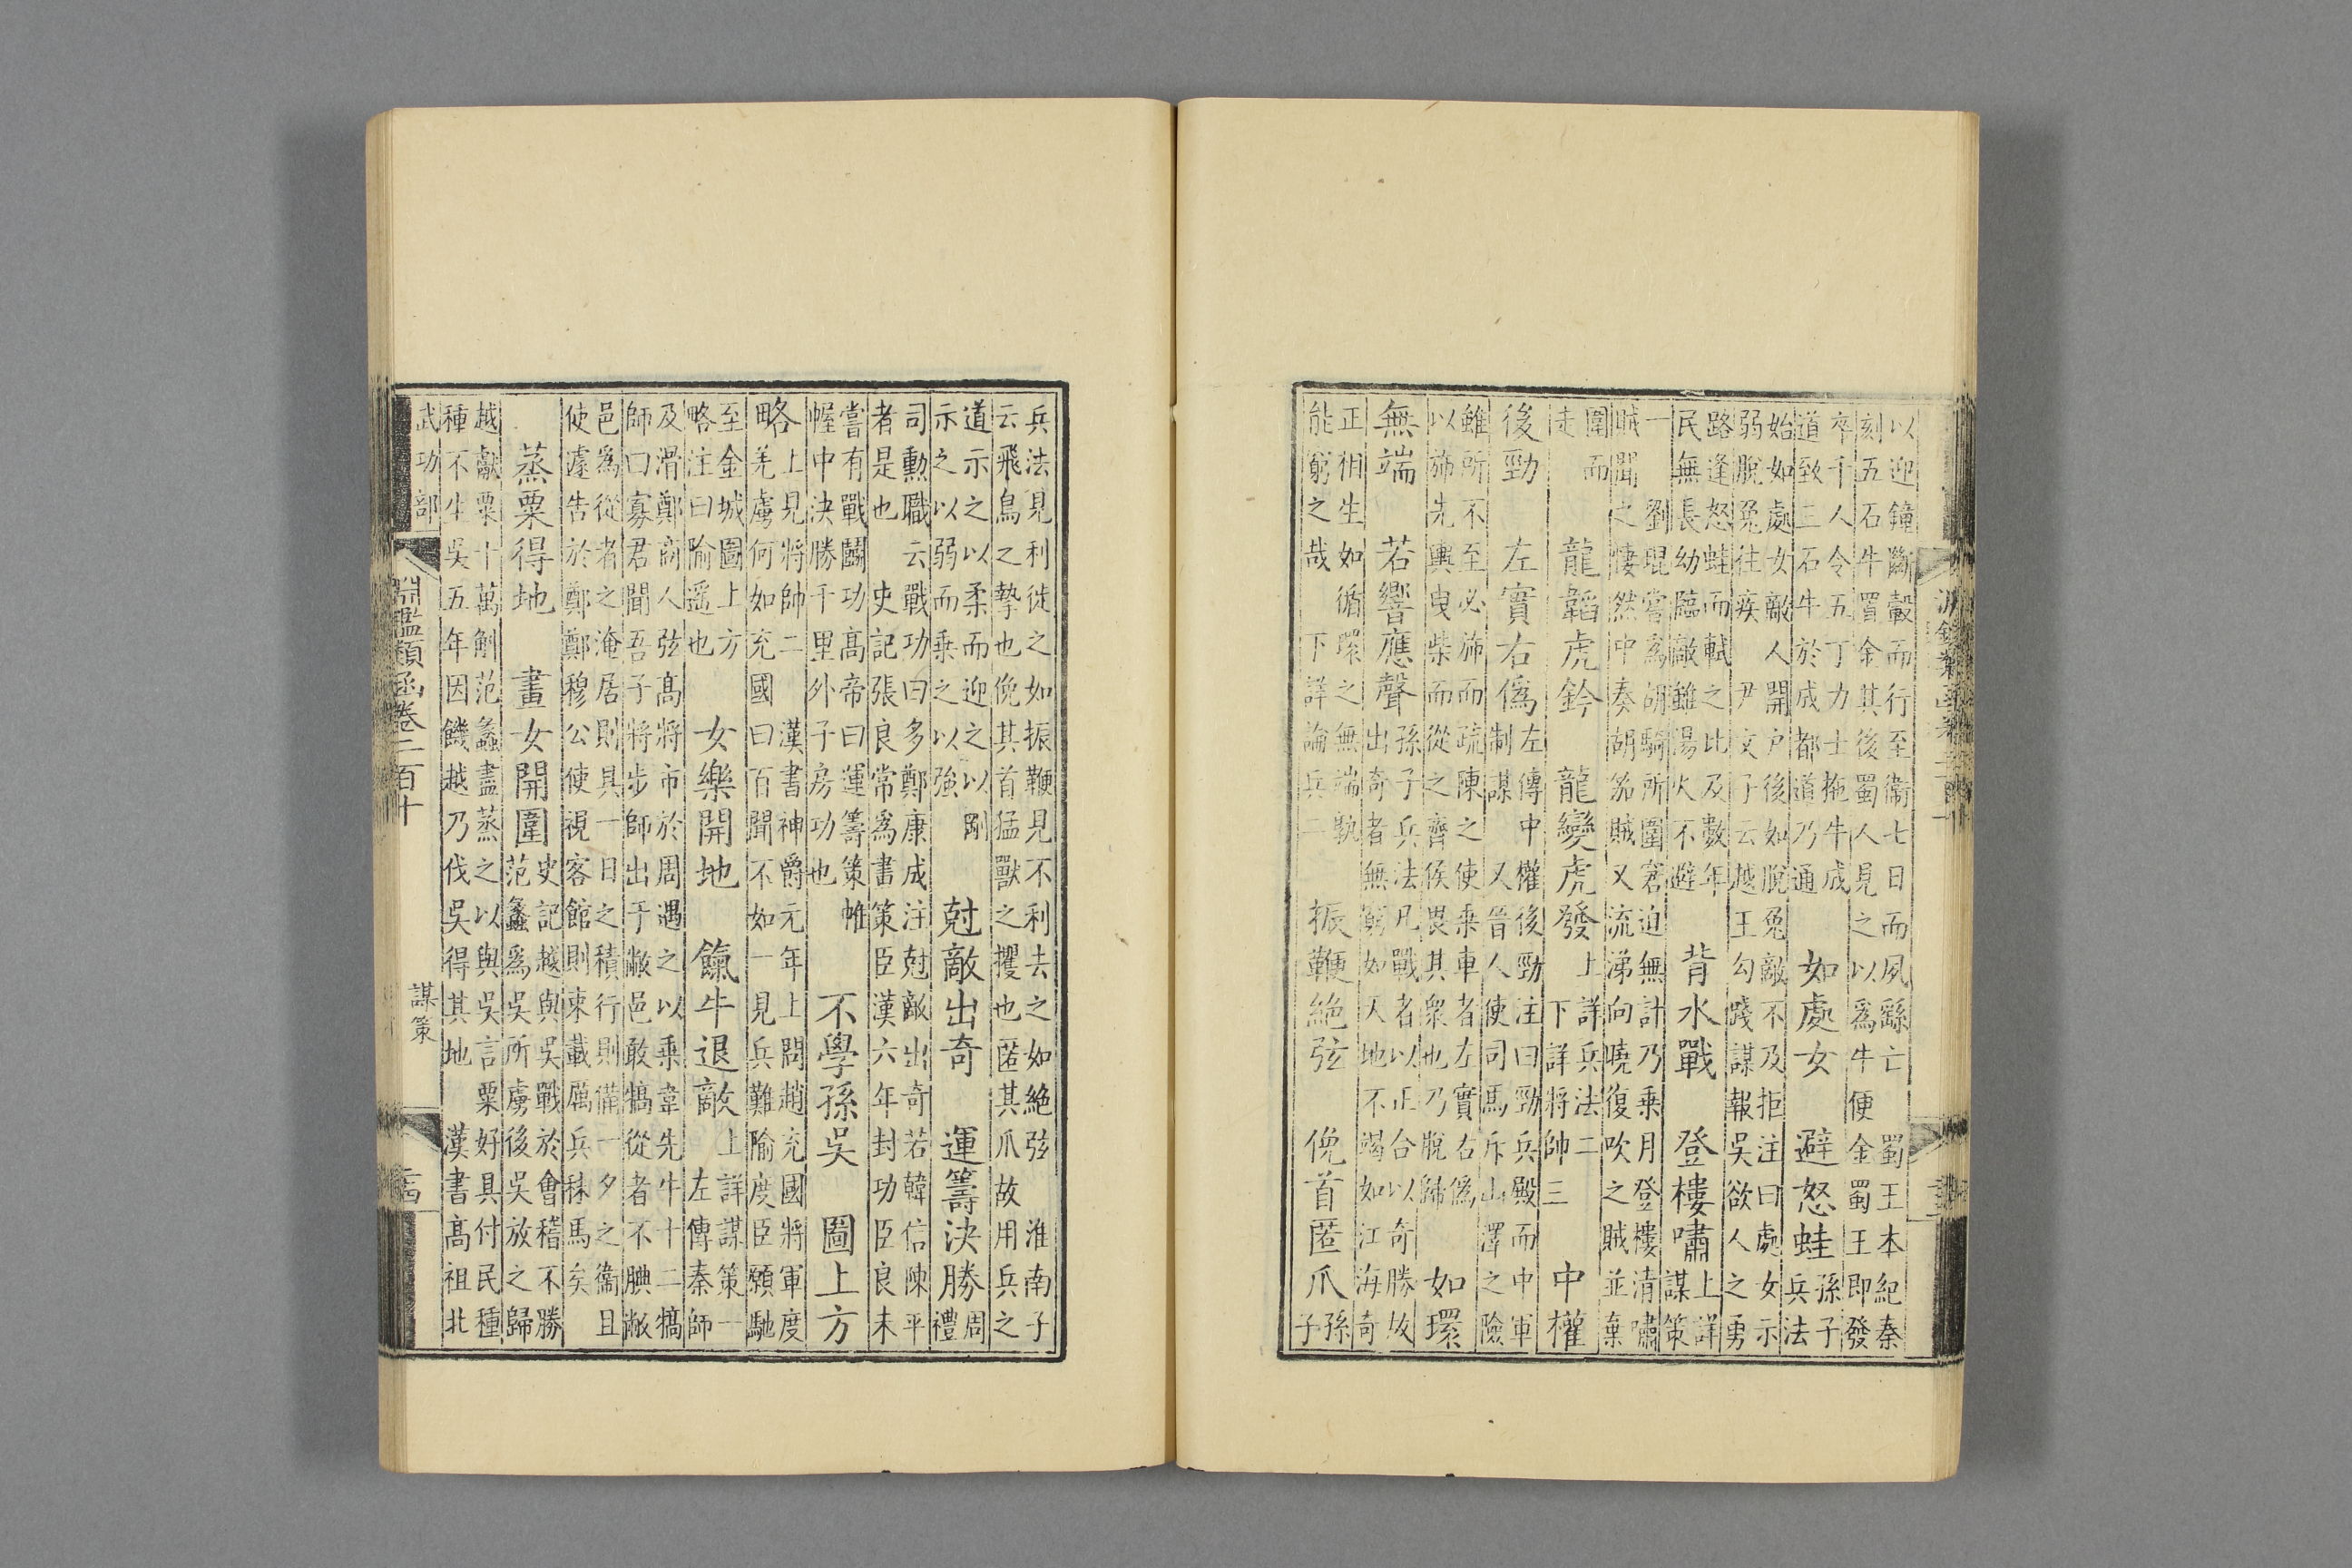 以迎鐘斷轂而行至衞七日而夙繇亡 蜀王本紀秦
刻五石牛置金其後蜀人見之以爲牛便金蜀王即發
卒千人令五丁力士拖牛成
道致三石牛於成都道乃通
如處女 避怒蛙
孫子
兵法
始如處女敵人開户後如脫兔敵不及拒注曰處女示
弱脫兔往疾 尹文子云越王勾踐謀報吳欲人之勇
路逢怒蛙而軾之比及數年
民無長幼臨敵雖湯火不避
背水戰 登樓嘯
上詳
謀策
一 劉琨嘗爲胡騎所圍窘迫無計乃乗月登樓清嘯
賊聞之悽然中奏胡笳賊又流涕向曉復吹之賊並棄
圍而
走
龍韜虎鈐 龍變虎發
上詳兵法二
下詳將帥三
中權
後勁 左實右僞
左傳中權後勁注曰勁兵殿而中軍
制謀 又晉人使司馬斥山澤之險
雖所不至必斾而疏陳之使乗車者左實右僞
以斾先輿曳柴而從之齊侯畏其衆也乃脫歸
如環
無端 若響應聲
孫子兵法凡戰者以正合以奇勝故
出奇者無窮如天地不竭如江海奇
正相生如循環之無端孰
能窮之哉 下詳論兵二
振鞭絶弦 俛首匿爪
孫
子
兵法見利徙之如振鞭見不利去之如絶弦 淮南子
云飛鳥之摯也俛其首猛獸之攫也匿其爪故用兵之
道示之以柔而迎之以剛
示之以弱而乗之以強
尅敵出奇 運籌決勝
周
禮
司勲職云戰功曰多鄭康成注尅敵出奇若韓信陳平
者是也 史記張良常爲畫策臣漢六年封功臣良未
嘗有戰鬬功髙帝曰運籌策帷
幄中決勝千里外子房功也
不學孫吳 圖上方
略
上見將帥二 漢書神爵元年上問趙充國將軍度
羌虜何如充國曰百聞不如一見兵難隃度臣願馳
至金城圖上方
略注曰隃遥也
女樂開地 餼牛退敵
上詳謀策一
左傳秦師
及滑鄭商人弦髙將市於周遇之以乗韋先牛十二犒
師曰寡君聞吾子將步師出于敝邑敢犒從者不腆敝
邑爲從者之淹居則具一日之積行則備一夕之衞且
使遽告於鄭鄭穆公使視客館則束載厲兵秣馬矣
蒸粟得地 畫女開圍
史記越與吳戰於會稽不勝
范蠡爲吳所虜後吳放之歸
越獻粟十萬斛范蠡盡蒸之以與吳言粟好具付民種
種不生吳五年因饑越乃伐吳得其地 漢書髙祖北
武功部
淵鑑類函卷二百十
謀策